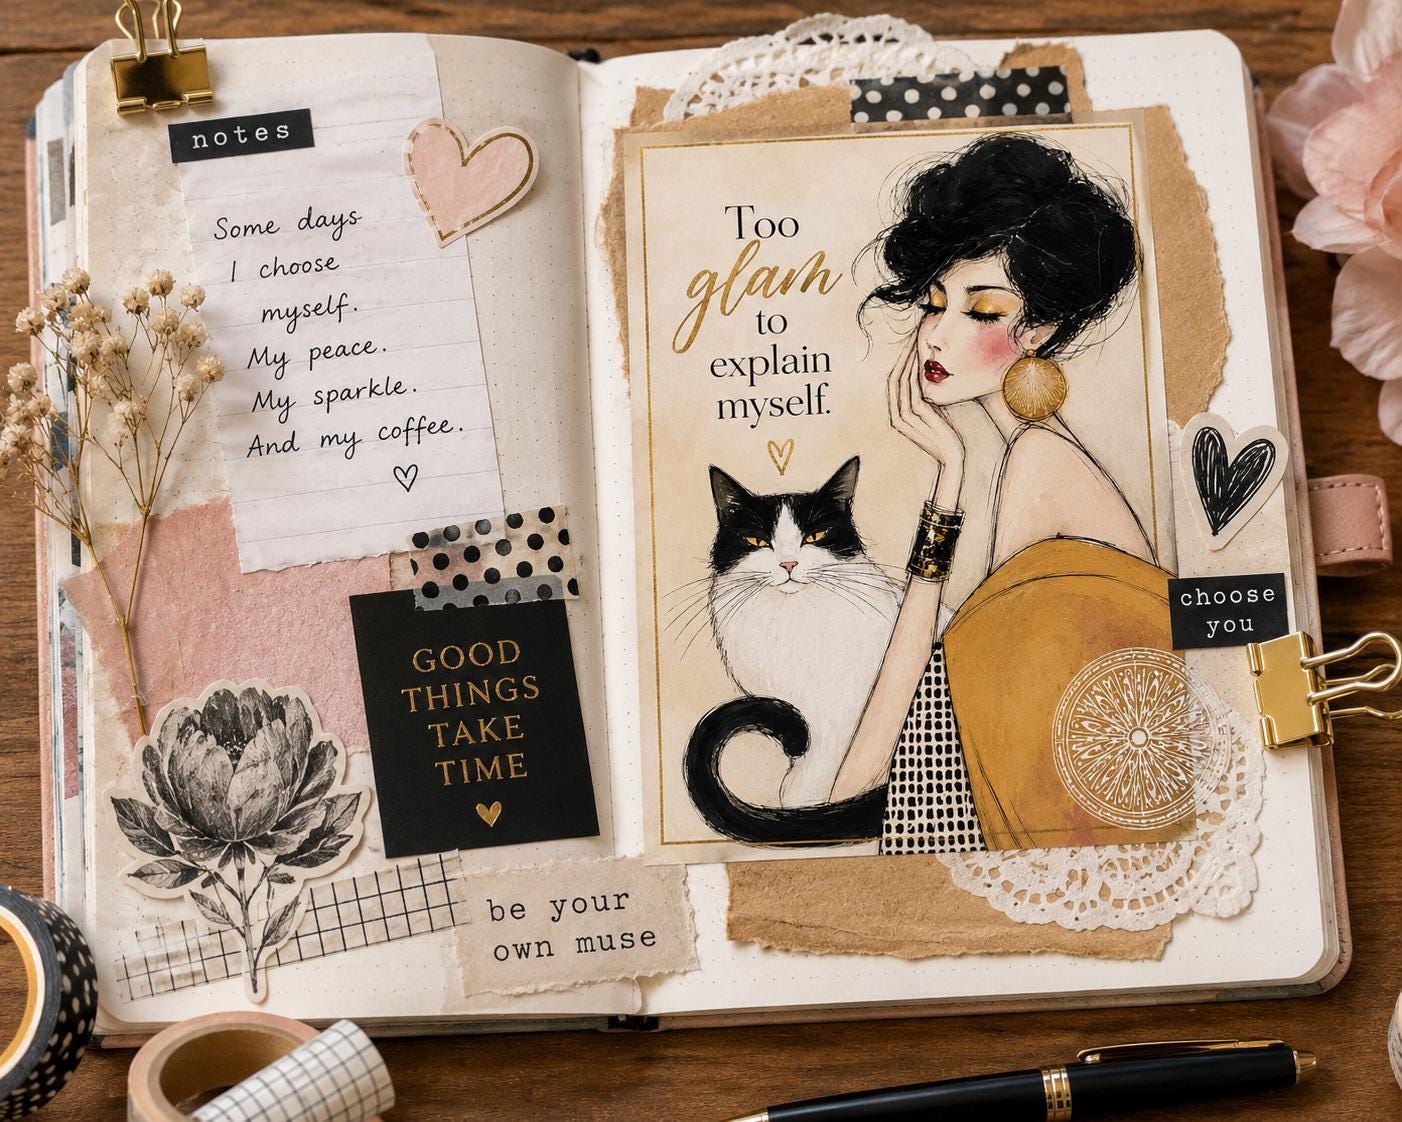 notes
Some days
I choose
myself.
My peace.
My sparkle.
And my coffee.
GOOD
THINGS
TAKE
TIME
be your
own muse
Too
glam
to
explain
myself.
choose
you